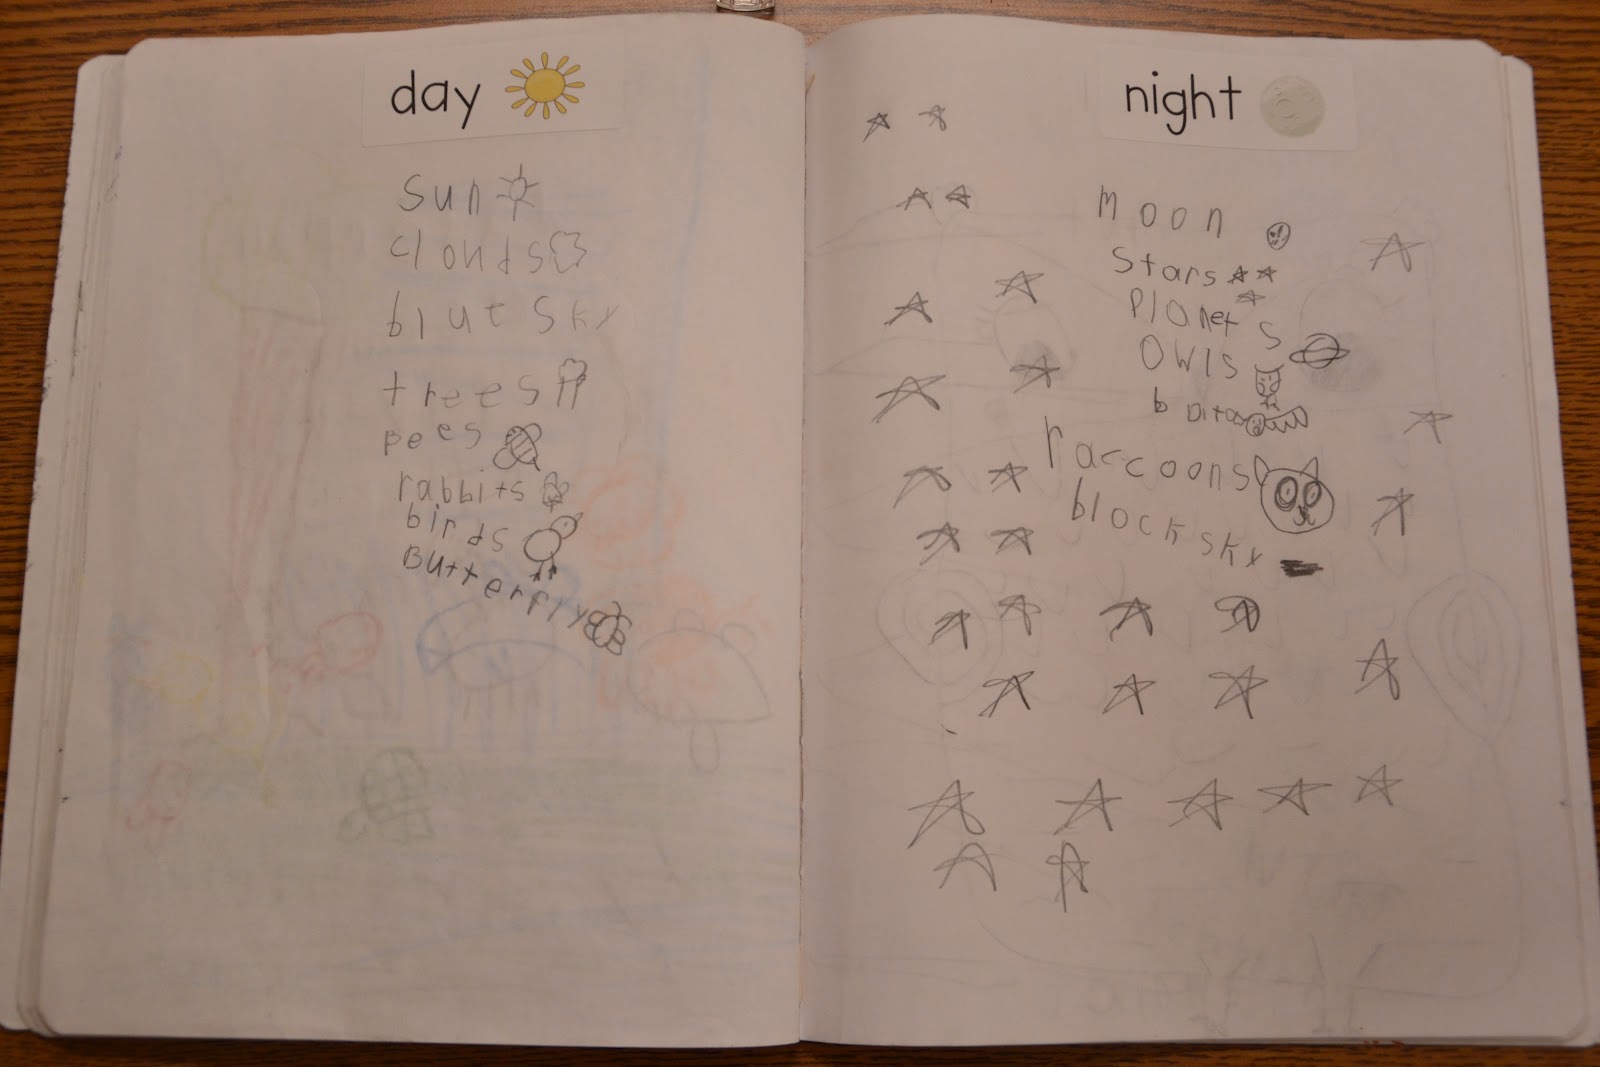 day
sun
clouds
blue sky
trees
bees
rabbits
birds
Butterfly
night
moon
stars
Planets
Owls
raccoons
block sky